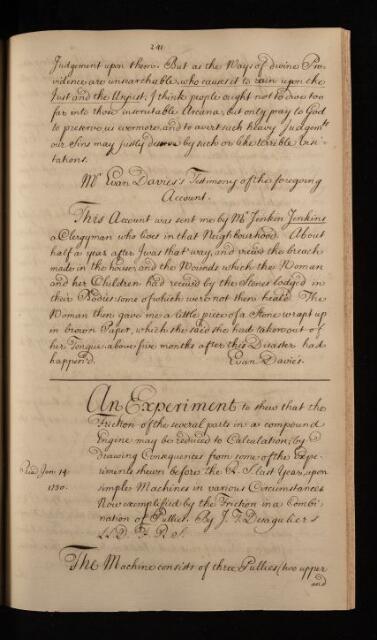 241
Judgement upon them. But as the Ways of divine Pro-
vidence are unsearchable, who causes it to rain upon the
Just and the Unjust; I think people ought not to dive too
far into those inscrutable Arcana, but only pray to God
to preserve us evermore, and to avert such heavy Judgemts
our Sins may justly deserve by such or like terrible Visi-
tations.
Mr Evan Davies's Testimony of the foregoing
Account.
This Account was sent me by Mr Jenkin Jenkins
a Clergyman who lives in that Neighbourhood. About
half a year after I was that way, and view'd the breach
made in the house, and the Wounds which the Woman
and her Children had receiv'd by the Stones lodg'd in
their Bodies some of which were not then heal'd. The
Woman then gave me a little piece of a Stone wrapt up
in brown Paper, which she said she had taken out of
her Tongue above five months after this Disaster had
happen'd. Evan Davies.
An Experiment to shew that the
Friction of the several parts in a compound
Engine may be reduced to Calculation; by
drawing Consequences from some of the Expe-
Read Jan. 14 riments shewn before the R. S. last Year, upon
1730. simple Machines in various Circumstances
Now exemplified by the Friction in a Combi-
nation of Pullies. By J. T. Desaguliers
LL.D. F. R. S.
The Machine consists of three Pullies (two upper
and